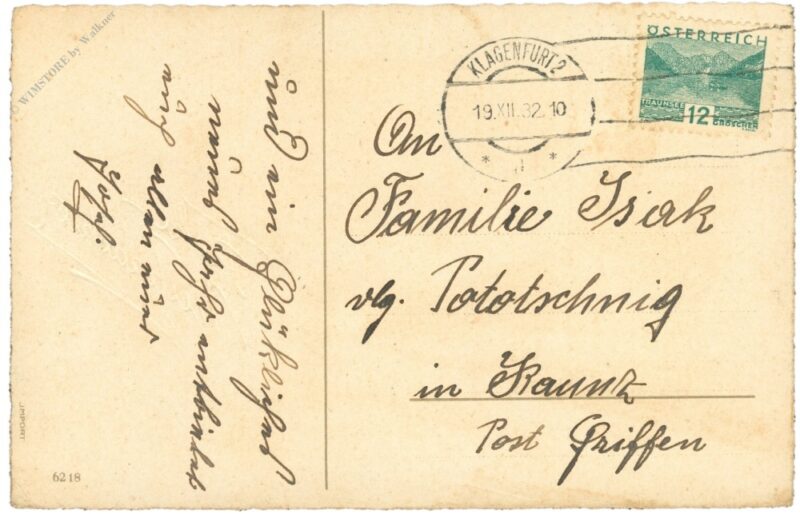 © WIMSTORE by Walkner
und ein Glückliches
neues Jahr entbietet
Euch allen
6218
IMPORT
KLAGENFURT 2
19.XII.32.10
* 11 *
ÖSTERREICH
TRAUNSEE
12 GROSCHEN
An
Familie Isak
vlg. Pototschnig
in Kaunz
Post Griffen